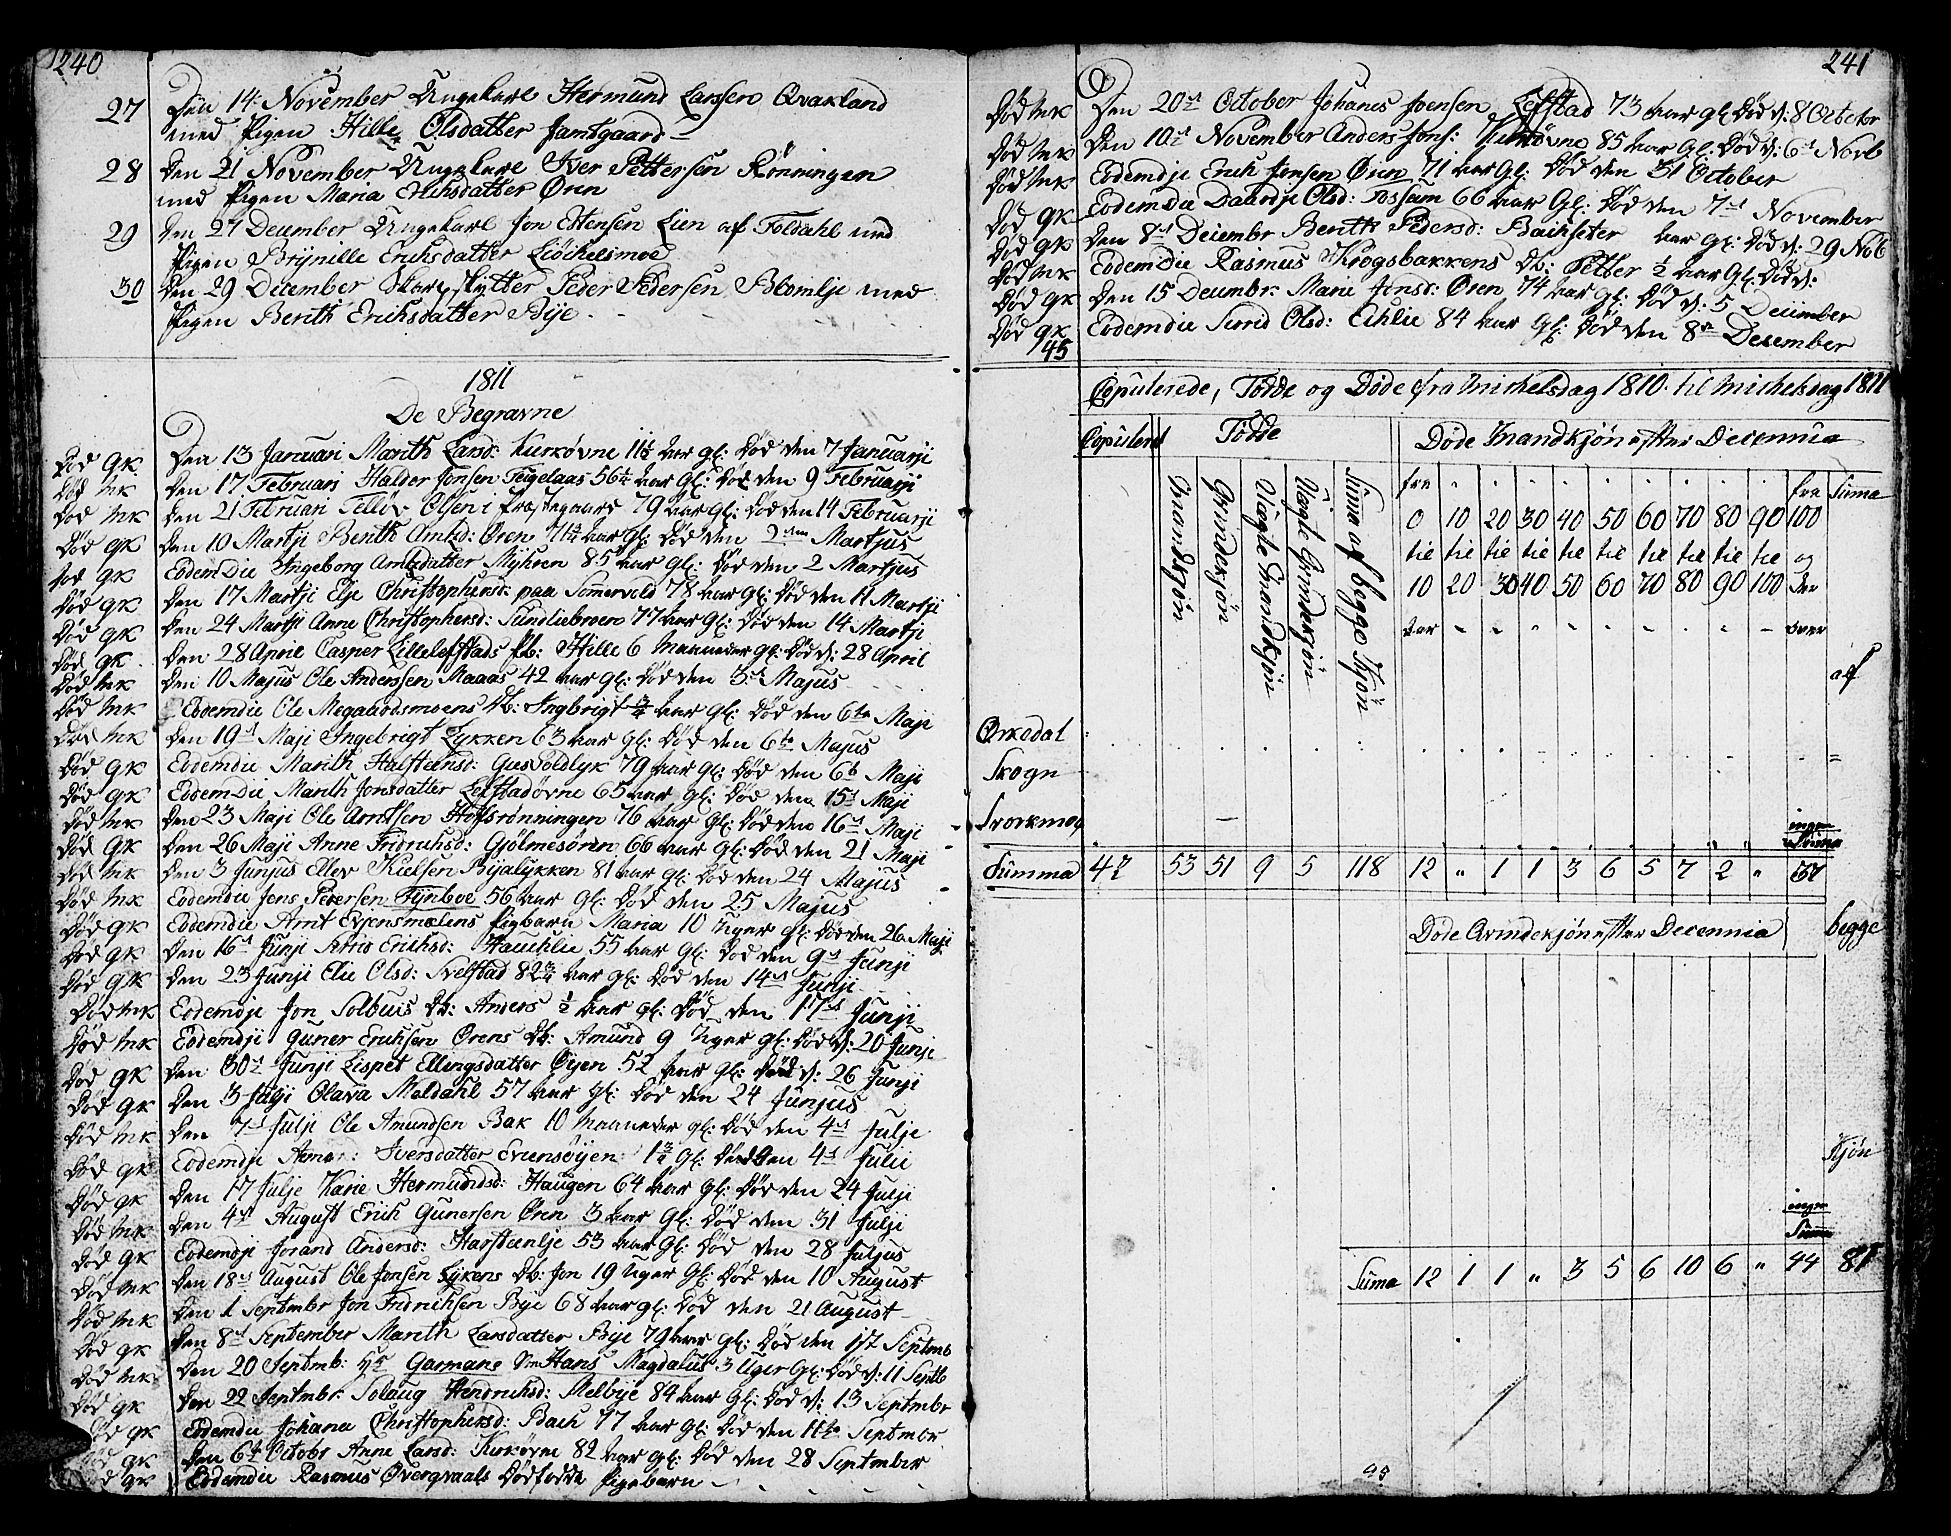 240
27 Den 14 November Ungekarl Hermund Larssen Qvakland
med Pigen Hille Olsdatter Jamtgaard
28 Den 21 November Ungkarl Iver Pettersen Rönningen
med Pigen Maria Erichsdatter Øren
29 Den 27 December Ungekarl Jon Estensen Lien af Foldahl med
Pigen Brynille Erichsdatter Liöchelsmoe
30 Den 29 December Skarpskytter Peder Pedersen Blomlje med
Pigen Berith Erichsdatter Bye
1811
De Begravne
Død GK Den 13 Januari Marith Larsd: Kirkövne 11½ aar gl: Død den 7 Januarji
Død MK Den 17 Februari Haldor Jonsen Teigelaas 56½ aar gl: Død den 9 Februarji
Død MK Den 21 Februari Tellöv Olsen i Præstegaard 79 aar gl: Død den 14 Februarji
Død GK Den 10 Martji Berith Arntsd: Øren aar gl: Død den Martjus
Død GK Eodemdie Ingeborg Arntsdatter Myhren 85 aar gl: Død den 2 Martjus
Død GK Den 17 Martji Elje Christophersd: paa Somervold 78 aar gl: Død den 11 Martji
Død GK Den 24 Martji Anne Christophersd: Sundliebroen 77 aar gl: Død den 14 Martji
Død GK Den 28 April Casper Lillelefstads Pb: Hille 6 Maaneder gl: Død d: 28 April
Død MK Den 10 Majus Ole Anderssen Maaas 42 aar gl: Død den 3 Majus
Død MK Eodemdie Ole Megaardsmoens Db: Ingbrigt ¾ aar gl: Død den 6te Maji
Død MK Den 19 Maji Ingebrigt Lykken 63 aar gl: Død den 6te Majus
Død GK Eodemdie Marith Halsteensd: 79 aar gl: Død den 6te Maji
Død GK Eodemdie Marith Jonsdatter Lefstadövne 65 aar gl: Død den 15 Maji
Død MK Den 23 Maji Ole Arntsen Hofsrönningen 76 aar gl: Død den 16 Maji
Død GK Den 26 Maji Anne Fridrichsd: Gjölmesören 66 aar gl: Død den 21 Maji
Død MK Den 3 Junjus Ellev Kielsen Byalykken 81 aar gl: Død den 24 Majus
Død MK Eodemdie Jens Petersen Fynboe 56 aar gl: Død den 25 Majus
Død GK Eodemdie Arnt Evjensmælens Pigbarn Maria 10 Uger gl: Død den 26 Maji
Død GK Den 16 Junji Erichsd: Hauchlie 55 aar gl: Død den 9 Junji
Død GK Den 23 Junji Elie Olsd: 82¾ aar gl: Død den 14 Junji
Død MK Eodemdj Jon Solbuis Db: Anders ½ aar gl: Død den 17 Junji
Død MK Eodemdji Guner Erichsen Ørens Db: Amund 9 Uger gl: Død d: 20 Junji
Død GK Den 30 Junji Lispet Ellingsdatter Öyen 52 aar gl: Død d: 26 Junji
Død GK Den 3 Julji Olava Meldahl 57 aar gl: Død den 24 Junjus
Død MK Den 7 Julji Ole Amundsen Bak 10 Maaneder gl: Død den 4 Julje
Død GK Eodemdji Iversdatter Evensöyen gl: Død den 4 Julii
Død GK Den 17 Julje Karie Hermundsd: Haugen 64 aar gl: Død den 24 Julji
Død MK Den 4 August Erich Gunersen Øren 3 aar gl: Død den 31 Julji
Død GK Eodemdji Jorand Andersd: Harsteenlje 53 aar gl: Død den 28 Juljus
Død MK Den 18 August Ole Jonsen Lykens Db: Jon 19 Uger gl: Død den 10 August
Død MK Den 1 Septmbr Jon Fridrichsen Bye 68 aar gl: Død den 21 August
Død GK Den 8 September Marith Larsdatter Bye 79 aar gl: Død den 1st Septmb
Død MK Den 20 Septmb: Garmane Hans Magdalus 3 Uger gl: Død d: 11 Septb
Død GK Den 22 Septmbr: Solaug Hendrichsd: Melbye 84 aar gl: Død d: 13 Septmbr
Død GK Eodemdie Johana Christophersd: Bach 77 aar gl: Død den 11te Septmbr
Død GK Den 6te Octobr Anne Larsd: Kirkövne 82 aar gl: Død den 28 Septmber
Død GK Eodemdie Rasmus Overqvaals Dödfödde Pigebarn
241
Død MK Den 20 October Johanes Joensen Lefstad 73 aar gl: Død d: 8 October
Død MK Den 10 November Anders Jons: Kirkövne 85 aar gl: Død d: 6 Novb
Død MK Eodemdje Erich Jonsen Øren 71 aar gl: Død den 31 October
Død GK Eodemdie Daardje Olsd: Fossum 66 aar gl: Død den 7 November
Død GK Den 8 Decembr Berith Pedersd: Bachseter aar gl: Død d: 29 Nob
Død MK Eodemdie Rasmus Krogsbakkens Db: Petter ½ aar gl: Død d:
Død GK Den 15 Decembr: Marie Jonsd: Øren 74 aar gl: Død d: 5 December
Død GK Eodemdie Sirrid Olsd: Echlie 84 aar gl: Død den 8 December
45
Copulerede, Födde og Døde fra Michelsdag 1810 til Michelsdag 1811
Copulered Födde Døde Mandkjön efter Decennia
Mandkjön Qvindekjön Uægte Mandkjön Uægte Qvindekjön Suma af begge Kjön fra fra Suma
0 10 20 30 40 50 60 70 80 90 100
til til til til til til til til til til og
10 20 30 40 50 60 70 80 90 100 der
aar over
af
Orkedal
Skogn
Svorkmoe
ingen
Suma
Summa 42 53 51 9 5 118 12 " 1 1 3 6 5 7 2 " 37
Døde Qvindekjön efter Decennia begge
Kjön
ingen
Suma
Suma 12 1 1 " 3 5 6 10 6 " 44 81